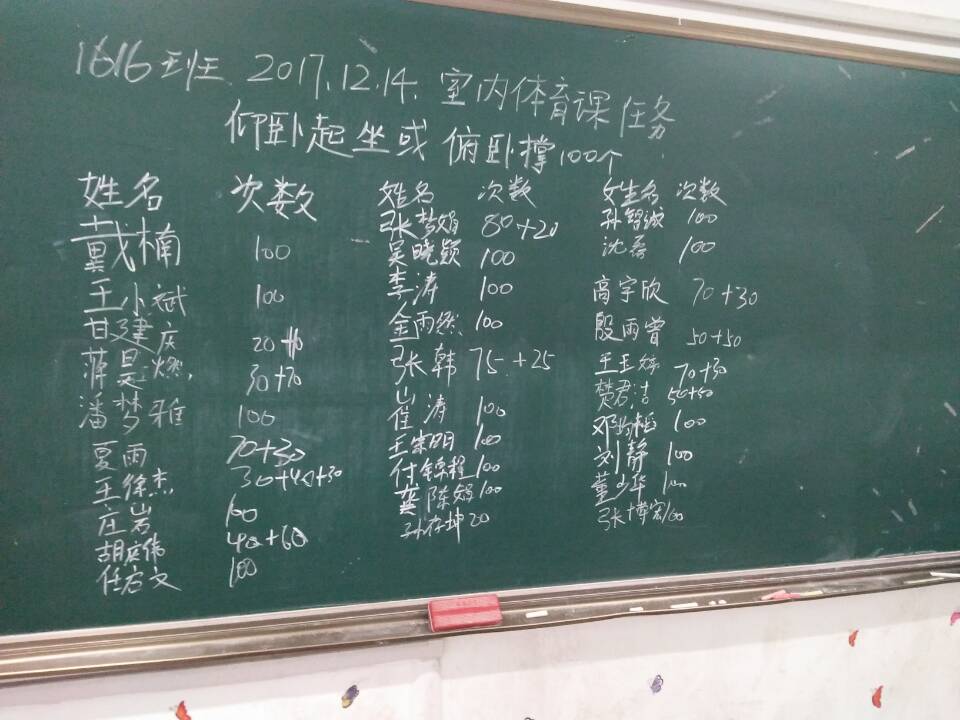 1616班 2017.12.14. 室内体育课任务
仰卧起坐或俯卧撑100个
姓名 次数
戴楠 100
王小斌 100
甘建庆 20
蒋昊燃 30+70
潘梦雅 100
夏雨 70+30
王徐杰 30+40+30
庄岩 100
胡庭伟 40+60
任启文 100
姓名 次数
张梦娟 80+20
吴晓颖 100
李涛 100
金雨然 100
张韩 75+25
崔涛 100
王宋明 100
付锦程 100
龚陈娟 100
孙存坤 20
姓名 次数
孙智诚 100
沈磊 100
高宇欣 70+30
殷雨曾 50+50
王玉婷 70+30
樊君洁 50+50
邓 100
刘静 100
董少华 100
张博宏 100